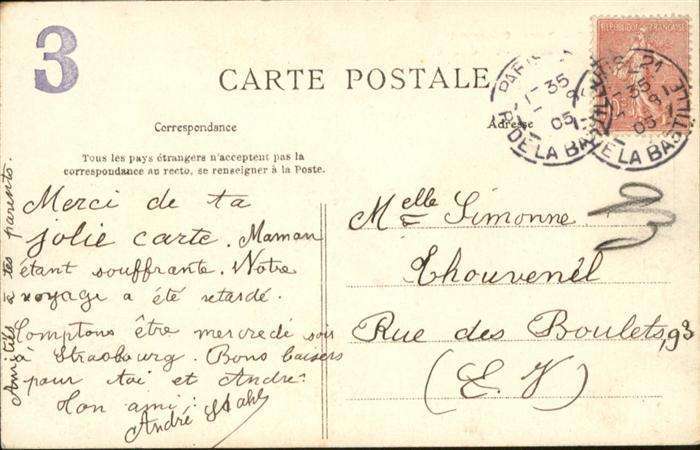 3
CARTE POSTALE
REPUBLIQUE FRANÇAISE
PARIS 21
35
05
R. DE LA BASTILLE
Correspondance
Adresse
Tous les pays étrangers n'acceptent pas la
correspondance au recto, se renseigner à la Poste.
Merci de ta
jolie carte. Maman
étant souffrante. Notre
voyage a été retardé.
Comptons être mercredi soir
à Strasbourg. Bons baisers
pour toi et André.
Ton ami:
André Stahl
Amitiés à tes parents.
Melle Simonne
Thouvenél
Rue des Boulets, 93
(E. V)